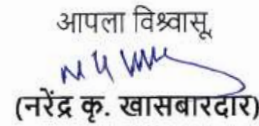 आपला विश्वासू,
(नरेंद्र कृ. खासबारदार)